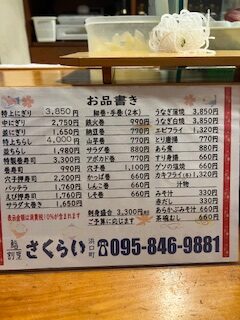 お品書き
特上にぎり 3,850円
中にぎり 2,750円
並にぎり 1,650円
特上ちらし 4,000円
並ちらし 1,980円
特製巻寿司 3,300円
巻寿司 990円
穴子押寿司 2,200円
バッテラ 1,760円
えび押寿司 1,760円
サラダ太巻き 1,650円
表示金額は消費税10%が含まれます
細巻・手巻(2本)
鉄火巻 990円
納豆巻 770円
山芋巻 770円
サラダ巻 880円
アボカド巻 770円
穴子巻 1,100円
かっぱ巻 660円
しんこ巻 660円
しそ巻 660円
刺身盛合 3,300円
ご予算に応じます
うなぎ蒲焼 3,850円
うなぎ白焼 3,850円
エビフライ 1,320円
とり唐揚 770円
あら煮 880円
すり身揚 660円
ゲソの唐揚 660円
ゲソの塩焼 660円
カキフライ 1,320円
汁物
みそ汁 330円
赤だし 330円
あらかぶみそ汁 660円
茶碗むし 660円
鮨
割烹
さくらい
浜口町
095-846-9881